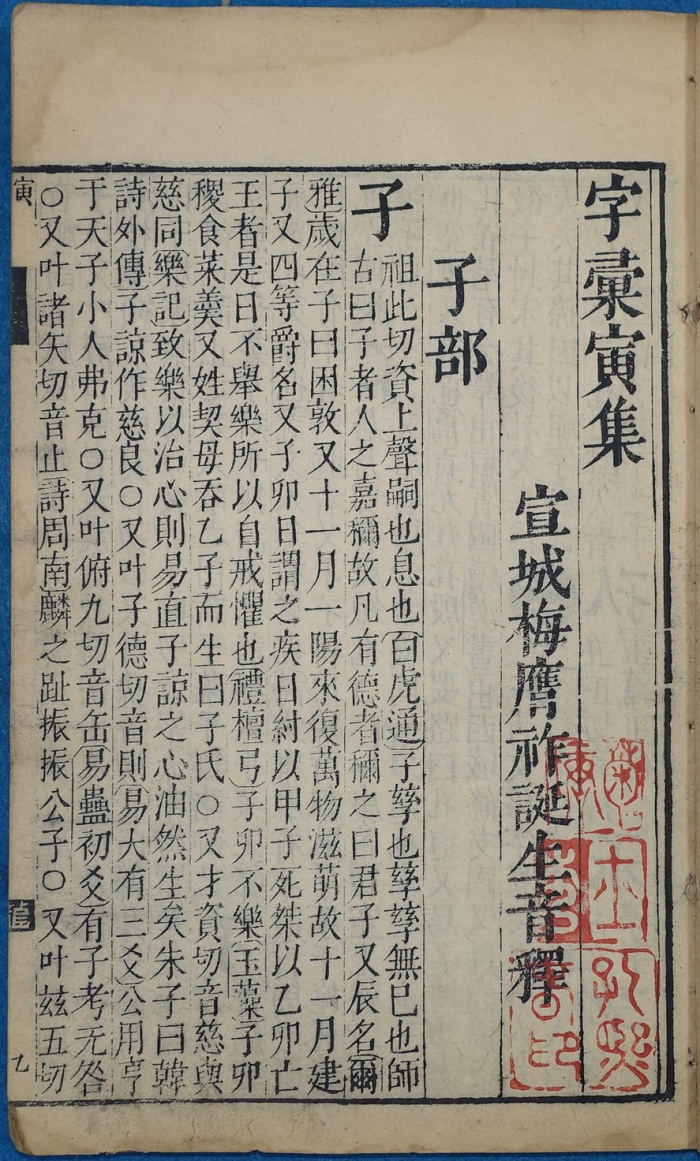 字彙寅集
宣城梅膺祚誕生音釋
子部
子 祖此切資上聲嗣也息也白虎通子孳也孳孳無已也師
古曰子者人之嘉稱故凡有德者稱之曰君子又辰名爾
雅歲在子曰困敦又十一月一陽來復萬物滋萌故十一月建
子又四等爵名又子卯日謂之疾日紂以甲子死桀以乙卯亡
王者是日不舉樂所以自戒懼也禮檀弓子卯不樂玉藻子卯
稷食菜羹又姓契母吞乙子而生曰子氏○又才資切音慈與
慈同樂記致樂以治心則易直子諒之心油然生矣朱子曰韓
詩外傳子諒作慈良○又叶子德切音則易大有三爻公用亨
于天子小人弗克○又叶俯九切音缶易蠱初爻有子考无咎
○又叶諸矢切音止詩周南麟之趾振振公子○又叶茲五切
寅